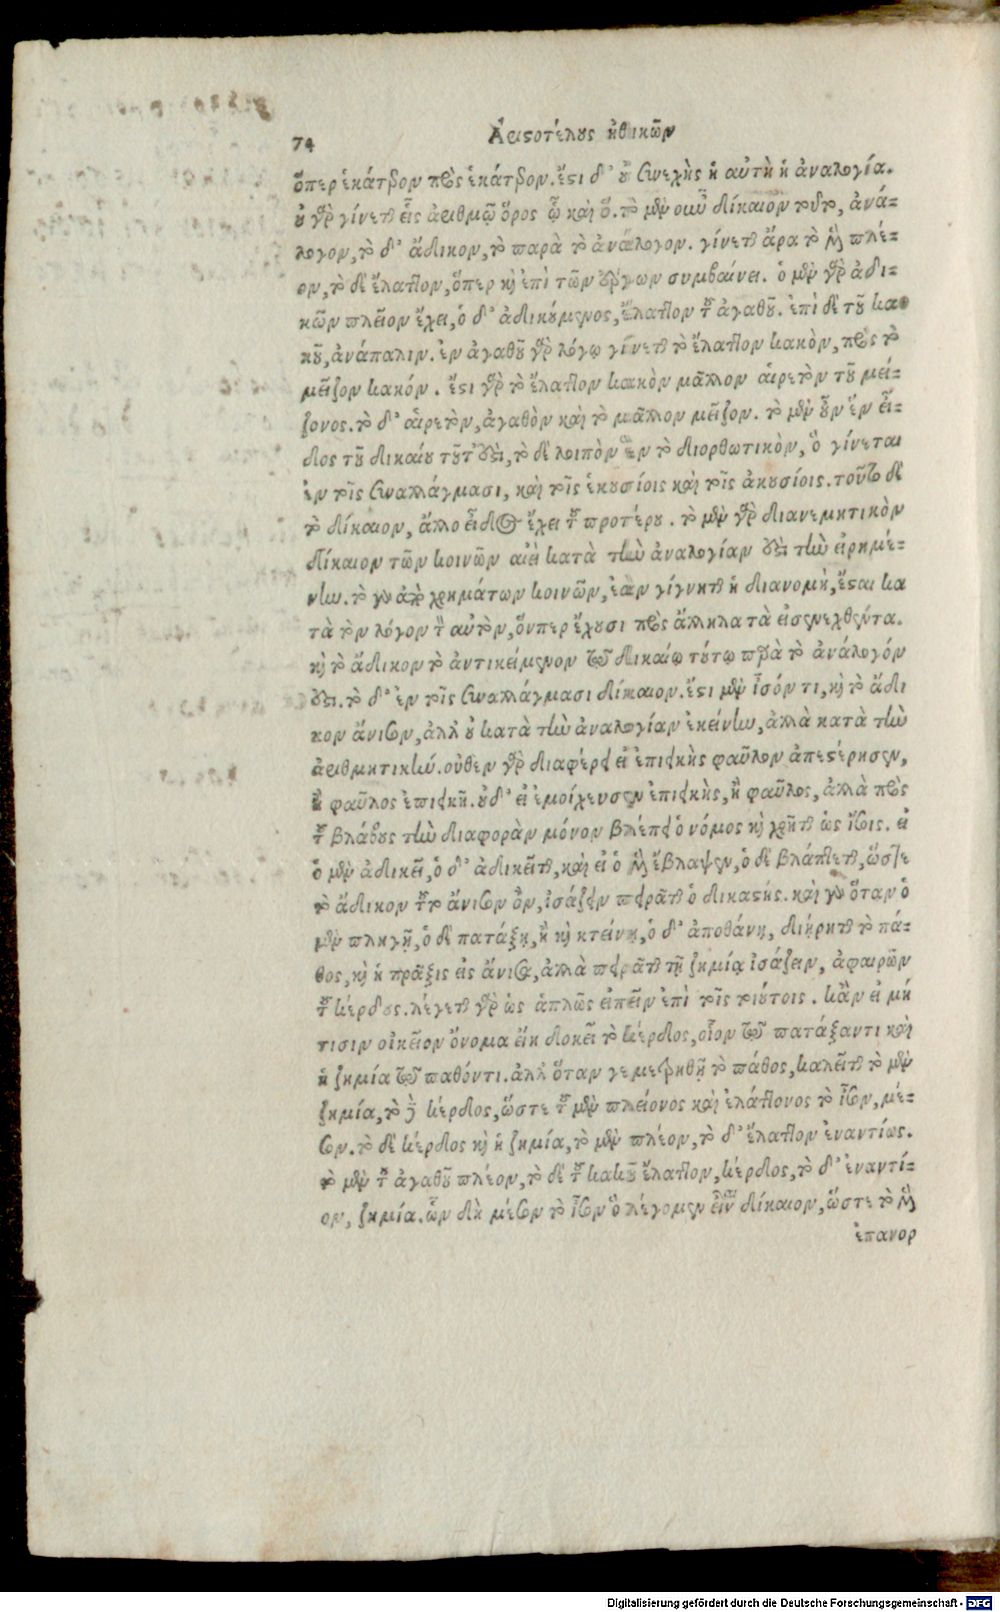 74
Ἀριστοτέλους ἠθικῶν
ὅπερ ἑκάτερον πρὸς ἑκάτερον. ἔστι δ᾽ οὐ συνεχὴς ἡ αὐτὴ ἡ ἀναλογία.
οὐ γὰρ γίνεται εἷς ἀριθμῷ ὅρος ᾧ καὶ ὅ. τὸ μὲν οὖν δίκαιον τοῦτο, ἀνά-
λογον, τὸ δ᾽ ἄδικον, τὸ παρὰ τὸ ἀνάλογον. γίνεται ἄρα τὸ μὲν πλέ-
ον, τὸ δὲ ἔλαττον, ὅπερ καὶ ἐπὶ τῶν ἔργων συμβαίνει. ὁ μὲν γὰρ ἀδι-
κῶν πλεῖον ἔχει, ὁ δ᾽ ἀδικούμενος, ἔλαττον τοῦ ἀγαθοῦ. ἐπὶ δὲ τοῦ κα
κοῦ, ἀνάπαλιν. ἐν ἀγαθοῦ γὰρ λόγῳ γίνεται τὸ ἔλαττον κακὸν, πρὸς τὸ
μεῖζον κακόν. ἔστι γὰρ τὸ ἔλαττον κακὸν μᾶλλον αἱρετὸν τοῦ μεί-
ζονος. τὸ δ᾽ αἱρετὸν, ἀγαθὸν καὶ τὸ μᾶλλον μεῖζον. τὸ μὲν οὖν ἓν εἶ-
δος τοῦ δικαίου τοῦτ᾽ ἐστὶ, τὸ δὲ λοιπὸν ἓν τὸ διορθωτικὸν, ὃ γίνεται
ἐν τοῖς συναλλάγμασι, καὶ τοῖς ἑκουσίοις καὶ τοῖς ἀκουσίοις. τοῦτο δὲ
τὸ δίκαιον, ἄλλο εἶδος ἔχει τοῦ προτέρου. τὸ μὲν γὰρ διανεμητικὸν
δίκαιον τῶν κοινῶν αἰεὶ κατὰ τὴν ἀναλογίαν ἐστὶ τὴν εἰρημέ-
νην. καὶ γὰρ ἀπὸ χρημάτων κοινῶν, ἐὰν γίγνηται ἡ διανομὴ, ἔσται κα
τὰ τὸν λόγον τὸν αὐτὸν, ὅνπερ ἔχουσι πρὸς ἄλληλα τὰ εἰσενεχθέντα.
καὶ τὸ ἄδικον τὸ ἀντικείμενον τῷ δικαίῳ τούτῳ παρὰ τὸ ἀνάλογόν
ἐστι. τὸ δ᾽ ἐν τοῖς συναλλάγμασι δίκαιον. ἔστι μὲν ἶσόν τι, καὶ τὸ ἄδι
κον ἄνισον, ἀλλ᾽ οὐ κατὰ τὴν ἀναλογίαν ἐκείνην, ἀλλὰ κατὰ τὴν
ἀριθμητικήν. οὐθὲν γὰρ διαφέρει εἰ ἐπιεικὴς φαῦλον ἀπεστέρησεν,
ἢ φαῦλος ἐπιεικῆ. οὐδ᾽ εἰ ἐμοίχευσεν ἐπιεικὴς, ἢ φαῦλος, ἀλλὰ πρὸς
τοῦ βλάβους τὴν διαφορὰν μόνον βλέπει ὁ νόμος καὶ χρῆται ὡς ἴσοις. εἰ
ὁ μὲν ἀδικεῖ, ὁ δ᾽ ἀδικεῖται, καὶ εἰ ὁ μὲν ἔβλαψεν, ὁ δὲ βλάπτεται, ὥστε
τὸ ἄδικον τοῦτο ἄνισον ὂν, ἰσάζειν πειρᾶται ὁ δικαστής. καὶ γὰρ ὅταν ὁ
μὲν πληγῇ, ὁ δὲ πατάξῃ, ἢ καὶ κτείνῃ, ὁ δ᾽ ἀποθάνῃ, διῄρηται τὸ πά-
θος, καὶ ἡ πρᾶξις εἰς ἄνισα, ἀλλὰ πειρᾶται τῇ ζημίᾳ ἰσάζειν, ἀφαιρῶν
τοῦ κέρδους. λέγεται γὰρ ὡς ἁπλῶς εἰπεῖν ἐπὶ τοῖς τοιούτοις. κἂν εἰ μή
τισιν οἰκεῖον ὄνομα εἴη δοκεῖ τὸ κέρδος, οἷον τῷ πατάξαντι καὶ
ἡ ζημία τῷ παθόντι. ἀλλ᾽ ὅταν γε μετρηθῇ τὸ πάθος, καλεῖται τὸ μὲν
ζημία, τὸ δὲ κέρδος, ὥστε τοῦ μὲν πλείονος καὶ ἐλάττονος τὸ ἶσον, μέ-
σον. τὸ δὲ κέρδος καὶ ἡ ζημία, τὸ μὲν πλέον, τὸ δ᾽ ἔλαττον ἐναντίως.
τὸ μὲν τοῦ ἀγαθοῦ πλέον, τὸ δὲ τοῦ κακοῦ ἔλαττον, κέρδος, τὸ δ᾽ ἐναντί-
ον, ζημία. ὧν δὴ μέσον τὸ ἶσον ὃ λέγομεν εἶναι δίκαιον, ὥστε τὸ μὲν
ἐπανορ
Digitalisierung gefördert durch die Deutsche Forschungsgemeinschaft - DFG